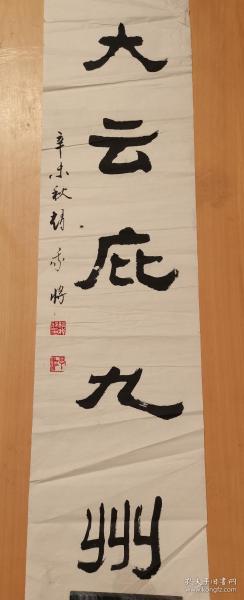 大云庇九州
辛未秋赵秀将
孔夫子旧书网